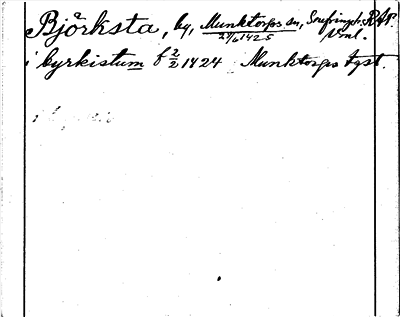 Björksta, by, Munktorps sn, Snefringe h. RAp.
27/6 1425 Vml.
i byrkistum f 2/2 1424 Munktorps tgst.